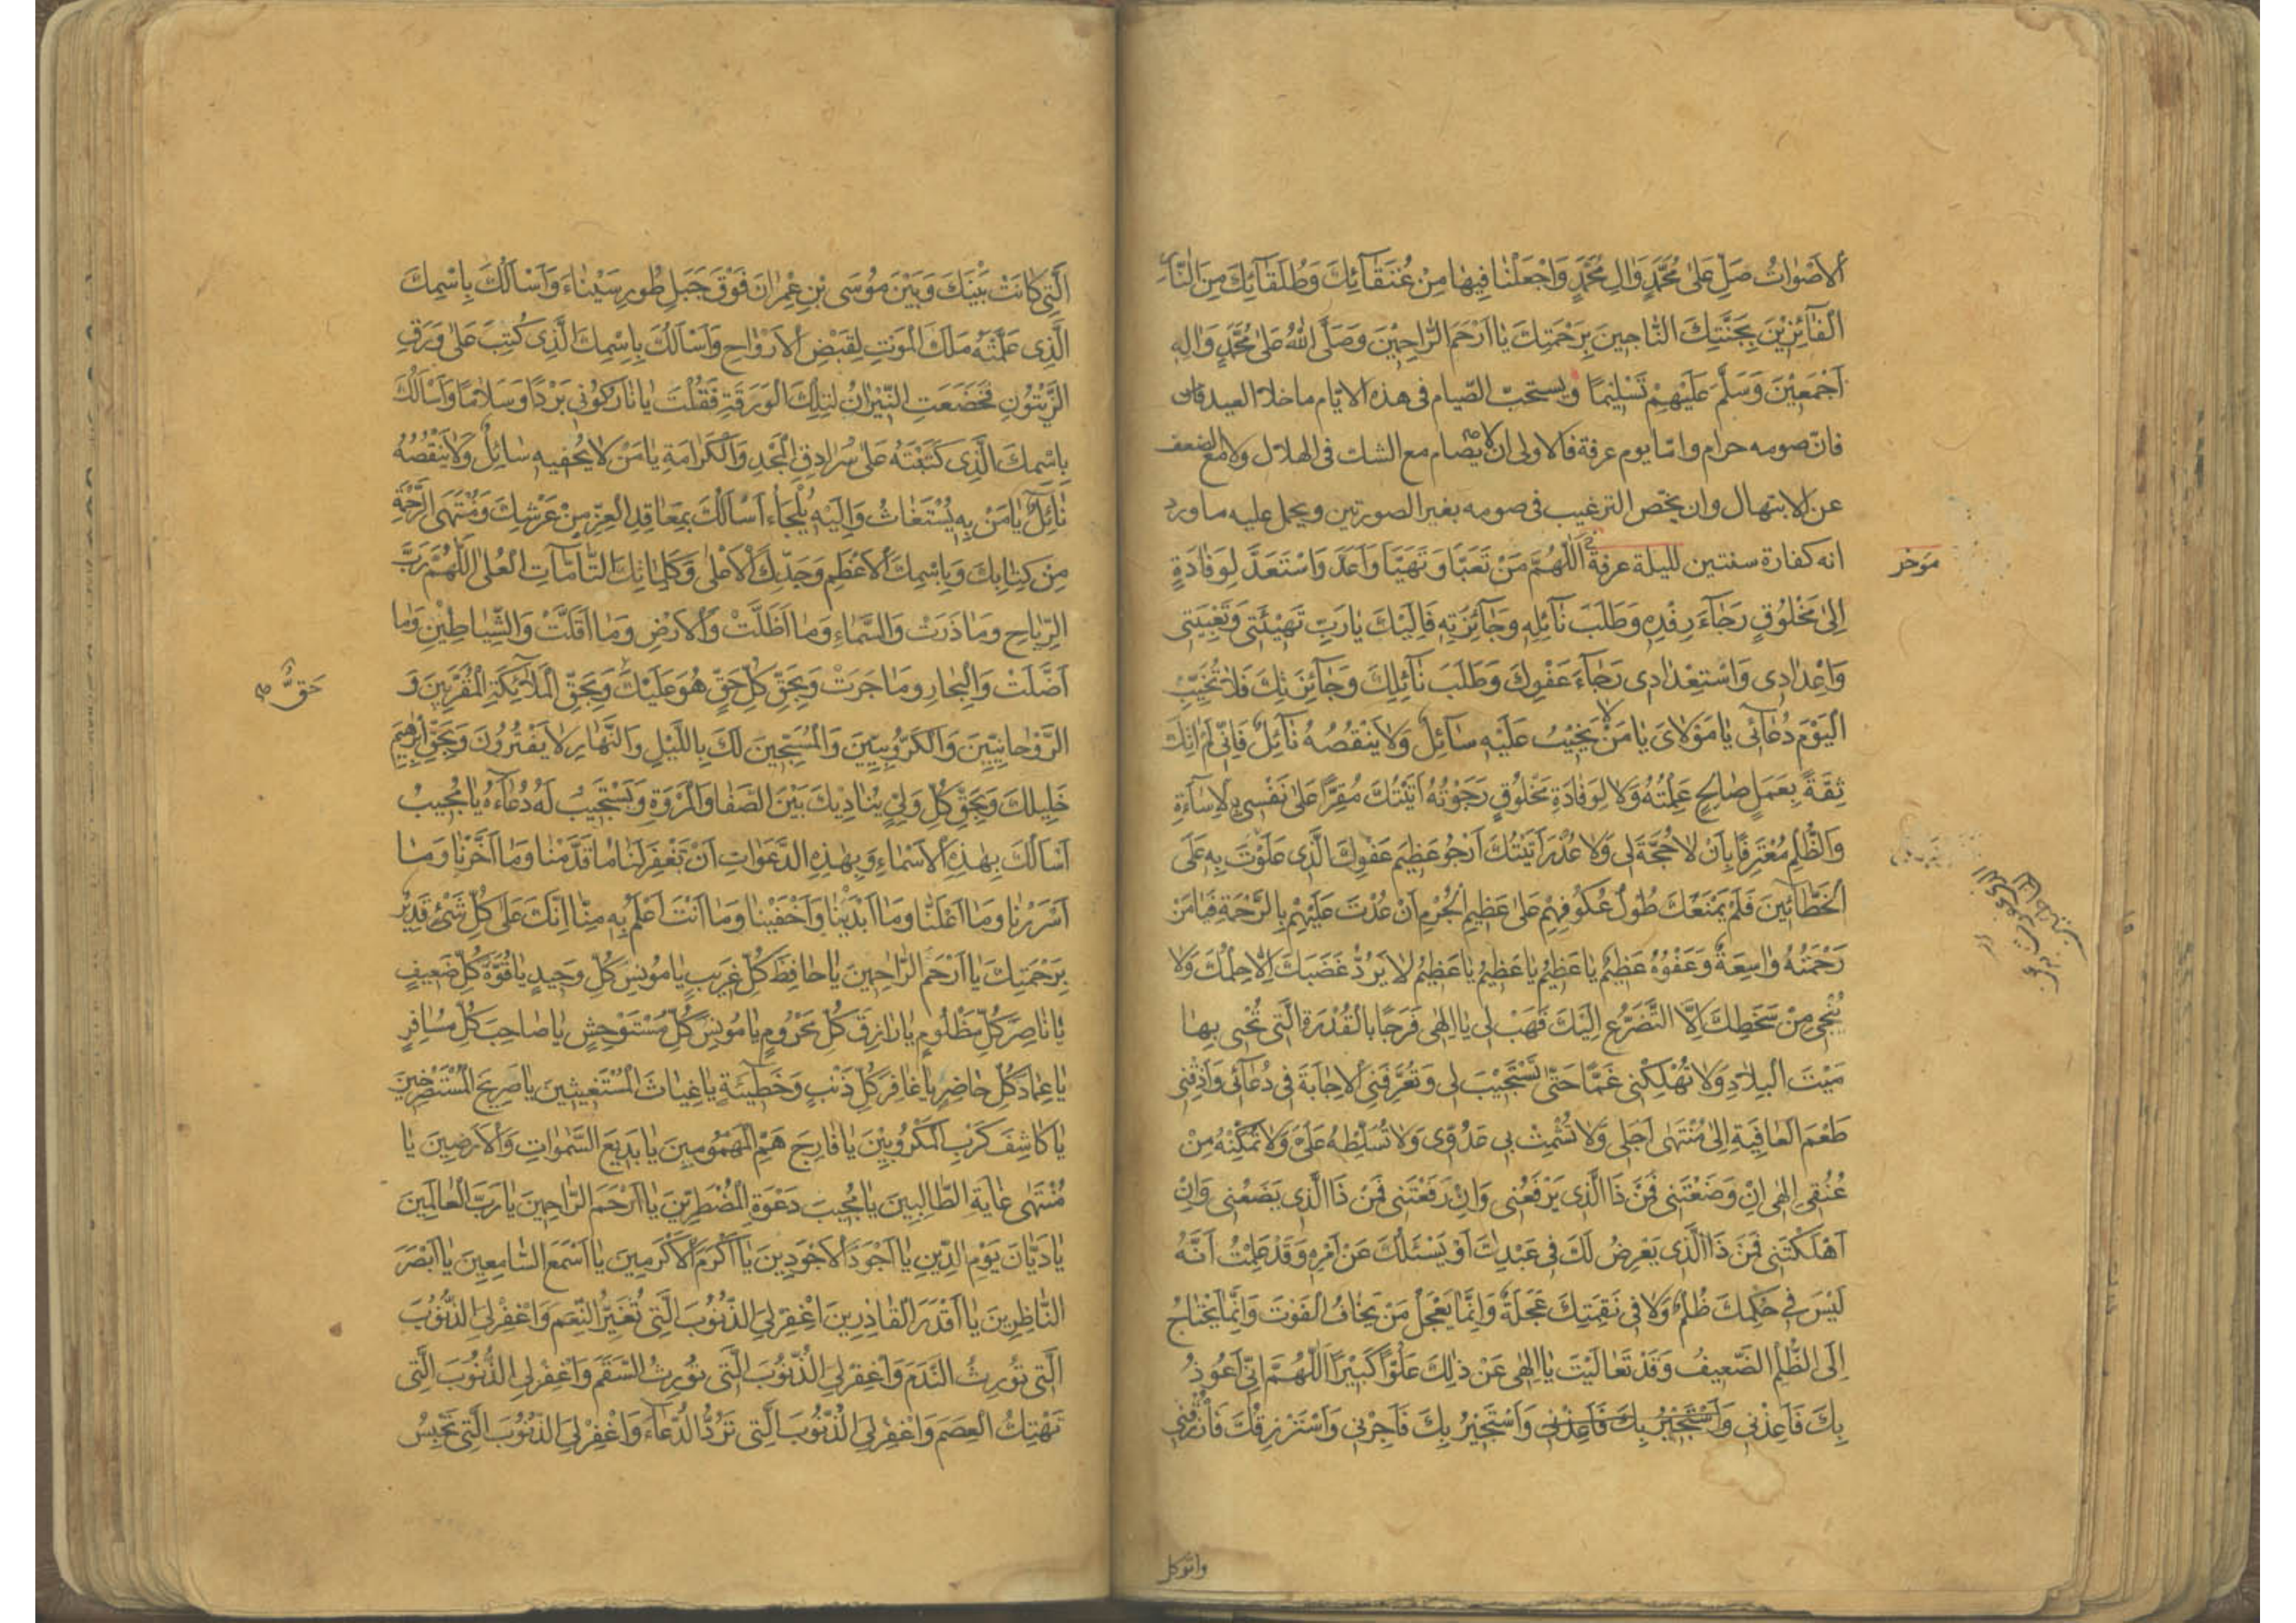 اَلْاَصْوٰاتُ صَلِّ عَلىٰ مُحَمَّدٍ وَاٰلِ مُحَمَّدٍ وَاجْعَلْنٰا فِيهٰا مِنْ عُتَقٰآئِكَ وَطُلَقٰآئِكَ مِنَ النّٰارِ
الْفٰآئِزِيْنَ بِجَنَّتِكَ النّٰاجِينَ بِرَحْمَتِكَ يٰا اَرْحَمَ الرّٰاحِمِيْنَ وَصَلَّى اللهُ عَلىٰ مُحَمَّدٍ وَاٰلِهِ
اَجْمَعِيْنَ وَسَلَّمَ عَلَيْهِمْ تَسْلِيْمًا ويستحبّ الصّيام فى هذه الايّام ماخلا العيد فان
فانّ صومه حرام وامّا يوم عرفة فالاولى ان لا يصام مع الشك فى الهلال ولا مع الضعف
عن الابتهال وان يخصّ الترغيب فى صومه بغير الصورتين ويحمل عليه ماورد
انه كفارة سنتين لليلة عرفة اَللّٰهُمَّ مَنْ تَعَبَّاَ وَتَهَيَّاَ وَاَعَدَّ وَاسْتَعَدَّ لِوَفٰادَةٍ
موخر
اِلىٰ مَخْلُوقٍ رَجٰآءَ رِفْدِهِ وَطَلَبَ نٰآئِلِهِ وَجٰآئِزَتِهِ فَاِلَيْكَ يٰا رَبِّ تَهْيِئَتِى وَتَعْبِيَتِى
وَاِعْدٰادِى وَاسْتِعْدٰادِى رَجٰآءَ عَفْوِكَ وَطَلَبَ نٰآئِلِكَ وَجٰآئِزَتِكَ فَلٰا تُخَيِّبِ
الْيَوْمَ دُعٰآئى يٰا مَوْلٰاىَ يٰا مَنْ لٰا يَخِيْبُ عَلَيْهِ سٰآئِلٌ وَلٰا يَنْقُصُهُ نٰآئِلٌ فَاِنّى لَمْ اٰتِكَ
ثِقَةً بِعَمَلٍ صٰالِحٍ عَمِلْتُهُ وَلٰا لِوَفٰادَةِ مَخْلُوقٍ رَجَوْتُهُ اَتَيْتُكَ مُقِرًّا عَلىٰ نَفْسِى بِالْاِسٰآءَةِ
وَالظُّلْمِ مُعْتَرِفًا بِاَنْ لٰا حُجَّةَ لى وَلٰا عُذْرَ اَتَيْتُكَ اَرْجُو عَظِيمَ عَفْوِكَ الَّذى عَلَوْتَ بِهِ عَلَى
الْخَطّٰآئِينَ فَلَمْ يَمْنَعْكَ طُوْلُ عُكُوفِهِمْ عَلىٰ عَظِيمِ الْجُرْمِ اَنْ عُدْتَ عَلَيْهِمْ بِالرَّحْمَةِ فَيٰا مَنْ
رَحْمَتُهُ وٰاسِعَةٌ وَعَفْوُهُ عَظِيمٌ يٰا عَظِيْمُ يٰا عَظِيْمُ يٰا عَظِيْمُ لٰا يَرُدُّ غَضَبَكَ اِلّٰا حِلْمُكَ وَلٰا
يُنْجى مِنْ سَخَطِكَ اِلَّا التَّضَرُّعُ اِلَيْكَ فَهَبْ لى يٰا اِلٰهى فَرَجًا بِالْقُدْرَةِ الَّتى تُحْيى بِهٰا
مَيْتَ الْبِلٰادِ وَلٰا تُهْلِكْنى غَمًّا حَتّٰى تَسْتَجِيْبَ لى وَتُعَرِّفَنِى الْاِجٰابَةَ فى دُعٰآئى وَاَذِقْنى
طَعْمَ الْعٰافِيَةِ اِلىٰ مُنْتَهىٰ اَجَلى وَلٰا تُشْمِتْ بى عَدُوّى وَلٰا تُسَلِّطْهُ عَلَىَّ وَلٰا تُمَكِّنْهُ مِنْ
عُنُقى اِلٰهى اِنْ وَضَعْتَنى فَمَنْ ذَا الَّذى يَرْفَعُنى وَاِنْ رَفَعْتَنى فَمَنْ ذَا الَّذى يَضَعُنى وَاِنْ
اَهْلَكْتَنى فَمَنْ ذَا الَّذى يَعْرِضُ لَكَ فى عَبْدِكَ اَوْ يَسْئَلُكَ عَنْ اَمْرِهِ وَقَدْ عَلِمْتُ اَنَّهُ
لَيْسَ فى حُكْمِكَ ظُلْمٌ وَلٰا فى نَقِمَتِكَ عَجَلَةٌ وَاِنَّمٰا يَعْجَلُ مَنْ يَخٰافُ الْفَوْتَ وَاِنَّمٰا يَحْتٰاجُ
اِلَى الظُّلْمِ الضَّعِيفُ وَقَدْ تَعٰالَيْتَ يٰا اِلٰهى عَنْ ذٰلِكَ عُلُوًّا كَبِيْرًا اَللّٰهُمَّ اِنّى اَعُوذُ
بِكَ فَاَعِذْنى وَاَسْتَجِيْرُ بِكَ فَاَعِذْنى وَاَسْتَجِيْرُ بِكَ فَاَجِرْنى وَاَسْتَرْزِقُكَ فَارْزُقْنى
واتوكل
الَّتى كٰانَتْ بَيْنَكَ وَبَيْنَ مُوْسَى بْنِ عِمْرٰانَ فَوْقَ جَبَلِ طُورِ سَيْنٰاءَ وَاَسْاَلُكَ بِاسْمِكَ
الَّذِى عَلَّمْتَهُ مَلَكَ الْمَوْتِ لِقَبْضِ الْاَرْوٰاحِ وَاَسْاَلُكَ بِاسْمِكَ الَّذِى كُتِبَ عَلىٰ وَرَقِ
الزَّيْتُونِ فَخَضَعَتِ النّيْرٰانُ لِتِلْكَ الْوَرَقَةِ فَقُلْتَ يٰا نٰارُ كُونى بَرْدًا وَسَلٰامًا وَاَسْاَلُكَ
بِاسْمِكَ الَّذِى كَتَبْتَهُ عَلىٰ سُرٰادِقِ الْمَجْدِ وَالْكَرٰامَةِ يٰا مَنْ لٰا يُحْفيهِ سٰائِلٌ وَلٰا يَنْقُصُهُ
نٰائِلٌ يٰا مَنْ بِهِ يُسْتَغٰاثُ وَاِلَيْهِ يُلْجَاُء اَسْاَلُكَ بِمَعٰاقِدِ الْعِزِّ مِنْ عَرْشِكَ وَمُنْتَهَى الرَّحْمَةِ
مِنْ كِتٰابِكَ وَبِاسْمِكَ الْاَعْظَمِ وَجَدِّكَ الْاَعْلىٰ وَكَلِمٰاتِكَ التّٰامّٰاتِ الْعُلىٰ اَللّٰهُمَّ رَبَّ
الرِّيٰاحِ وَمٰا ذَرَتْ وَالسَّمٰاءِ وَمٰا اَظَلَّتْ وَالْاَرْضِ وَمٰا اَقَلَّتْ وَالشَّيٰاطِيْنِ وَمٰا
اَضَلَّتْ وَالْبِحٰارِ وَمٰا جَرَتْ وَبِحَقِّ كُلِّ حَقٍّ هُوَ عَلَيْكَ وَبِحَقِّ الْمَلٰآئِكَةِ الْمُقَرَّبِينَ وَ
حَقٌّ صح
الرَّوْحٰانِيّيْنَ وَالْكَرُّوبِيّيْنَ وَالْمُسَبِّحِينَ لَكَ بِاللَّيْلِ وَالنَّهٰارِ لٰا يَفْتُرُونَ وَبِحَقِّ اِبْرٰهِيمَ
خَلِيلِكَ وَبِحَقِّ كُلِّ وَلِىٍّ يُنٰادِيْكَ بَيْنَ الصَّفٰا وَالْمَرْوَةِ وَتَسْتَجِيْبُ لَهُ دُعٰآءَهُ يٰا مُجِيبُ
اَسْاَلُكَ بِهٰذِهِ الْاَسْمٰاءِ وَبِهٰذِهِ الدَّعَوٰاتِ اَنْ تَغْفِرَ لَنٰا مٰا قَدَّمْنٰا وَمٰا اَخَّرْنٰا وَمٰا
اَسْرَرْنٰا وَمٰا اَعْلَنّٰا وَمٰا اَبْدَيْنٰا وَاَخْفَيْنٰا وَمٰا اَنْتَ اَعْلَمُ بِهِ مِنّٰا اِنَّكَ عَلىٰ كُلِّ شَىْءٍ قَدِيْرٌ
بِرَحْمَتِكَ يٰا اَرْحَمَ الرّٰاحِمِيْنَ يٰا حٰافِظَ كُلِّ غَرِيبٍ يٰا مُونِسَ كُلِّ وَحِيدٍ يٰا قُوَّةَ كُلِّ ضَعِيفٍ
يٰا نٰاصِرَ كُلِّ مَظْلُومٍ يٰا رٰازِقَ كُلِّ مَحْرُومٍ يٰا مُونِسَ كُلِّ مُسْتَوْحِشٍ يٰا صٰاحِبَ كُلِّ مُسٰافِرٍ
يٰا عِمٰادَ كُلِّ حٰاضِرٍ يٰا غٰافِرَ كُلِّ ذَنْبٍ وَخَطِيْئَةٍ يٰا غِيٰاثَ الْمُسْتَغِيثِينَ يٰا صَرِيخَ الْمُسْتَصْرِخِينَ
يٰا كٰاشِفَ كَرْبِ الْمَكْرُوبِيْنَ يٰا فٰارِجَ هَمِّ الْمَهْمُومِينَ يٰا بَدِيعَ السَّمٰوٰاتِ وَالْاَرَضِينَ يٰا
مُنْتَهىٰ غٰايَةِ الطّٰالِبِينَ يٰا مُجِيبَ دَعْوَةِ الْمُضْطَرِّيْنَ يٰا اَرْحَمَ الرّٰاحِمِينَ يٰا رَبَّ الْعٰالَمِينَ
يٰا دَيّٰانَ يَوْمِ الدّينِ يٰا اَجْوَدَ الْاَجْوَدِينَ يٰا اَكْرَمَ الْاَكْرَمِينَ يٰا اَسْمَعَ السّٰامِعِيْنَ يٰا اَبْصَرَ
النّٰاظِرِينَ يٰا اَقْدَرَ الْقٰادِرِينَ اغْفِرْ لِىَ الذُّنُوبَ الَّتِى تُغَيِّرُ النِّعَمَ وَاغْفِرْ لِىَ الذُّنُوبَ
الَّتى تُورِثُ النَّدَمَ وَاغْفِرْ لِىَ الذُّنُوبَ الَّتى تُورِثُ السَّقَمَ وَاغْفِرْ لِىَ الذُّنُوبَ الَّتى
تَهْتِكُ الْعِصَمَ وَاغْفِرْ لِىَ الذُّنُوبَ الَّتى تَرُدُّ الدُّعٰآءَ وَاغْفِرْ لِىَ الذُّنُوبَ الَّتِى تَحْبِسُ